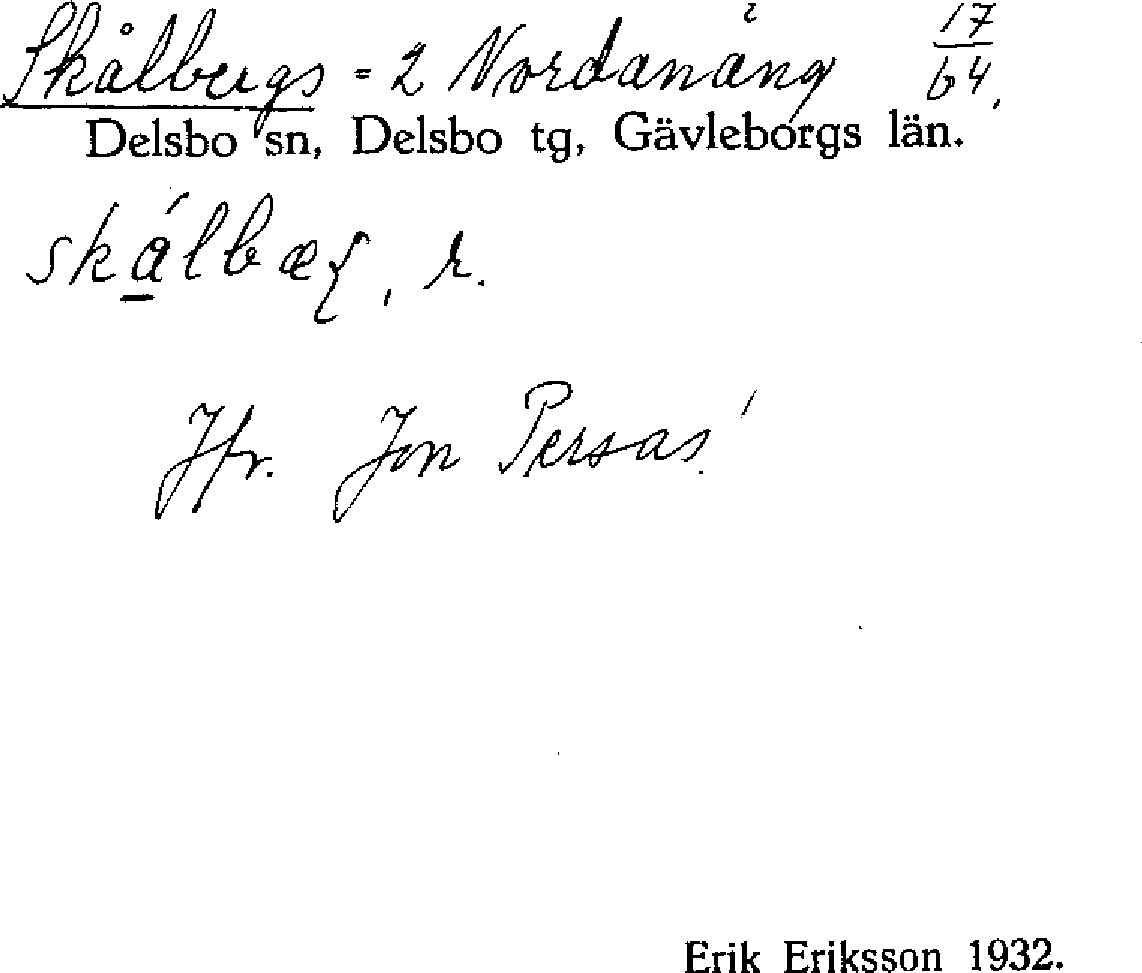 Skålbergs = 2 Nordanäng 17/64.
Delsbo sn, Delsbo tg, Gävleborgs län.
skålbæʃ, r.
Jfr. Jon Persas!
Erik Eriksson 1932.